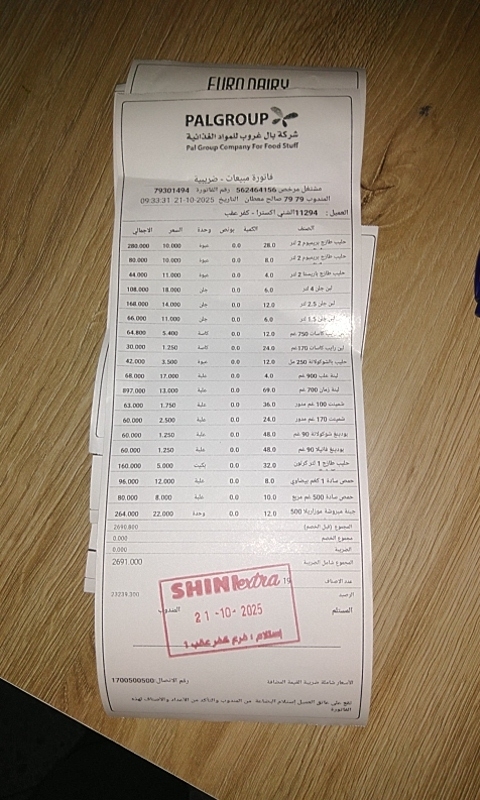 EURO DAIRY
PALGROUP
شركة بال غروب للمواد الغذائية
Pal Group Company For Food Stuff
فاتورة مبيعات - ضريبية
مشتغل مرخص 562464156 رقم الفاتورة 79301494
المندوب 79 79 صالح معطان التاريخ 21-10-2025 09:33:31
العميل : 11294 الشني اكسترا - كفر عقب
الصنف الكمية بونص وحدة السعر الاجمالي
حليب طازج بريميوم 2 لتر 28.0 0.0 عبوة 10.000 280.000
حليب طازج بريميوم 2 لتر 8.0 0.0 عبوة 10.000 80.000
حليب طازج باريستا 2 لتر 4.0 0.0 عبوة 11.000 44.000
لبن جلن 4 لتر 6.0 0.0 جلن 18.000 108.000
لبن جلن 2.5 لتر 12.0 0.0 جلن 14.000 168.000
لبن جلن 1.5 لتر 6.0 0.0 جلن 11.000 66.000
كاسات 750 غم 12.0 0.0 كاسة 5.400 64.800
لبن رايب كاسات 170 غم 24.0 0.0 كاسة 1.250 30.000
حليب بالشوكولاتة 250 مل 12.0 0.0 عبوة 3.500 42.000
لبنة علب 900 غم 4.0 0.0 علبة 17.000 68.000
لبنة زمان 700 غم 69.0 0.0 علبة 13.000 897.000
شمينت 100 غم مدور 36.0 0.0 علبة 1.750 63.000
شمينت 170 غم مدور 24.0 0.0 علبة 2.500 60.000
بودينغ شوكولاتة 90 غم 48.0 0.0 علبة 1.250 60.000
بودينغ فانيلا 90 غم 48.0 0.0 علبة 1.250 60.000
حليب طازج 1 لتر كرتون 32.0 0.0 بكيت 5.000 160.000
حمص سادة 1 كغم بيضاوي 8.0 0.0 علبة 12.000 96.000
حمص سادة 500 غم مربع 10.0 0.0 علبة 8.000 80.000
جبنة مبروشة موزاريلا 500 12.0 0.0 وحدة 22.000 264.000
المجموع (قبل الخصم) 2690.800
مجموع الخصم 0.000
الضريبة 0.000
المجموع شامل الضريبة 2691.000
عدد الاصناف 19
الرصيد
المستلم المندوب
SHINI extra
21-10-2025
إستلام : فرع كفر عقب 1
الاسعار شاملة ضريبة القيمة المضافة رقم الاتصال 1700500500
تقع على عاتق العميل إستلام البضاعة من المندوب والتأكد من الأعداد والأصناف لهذه الفاتورة